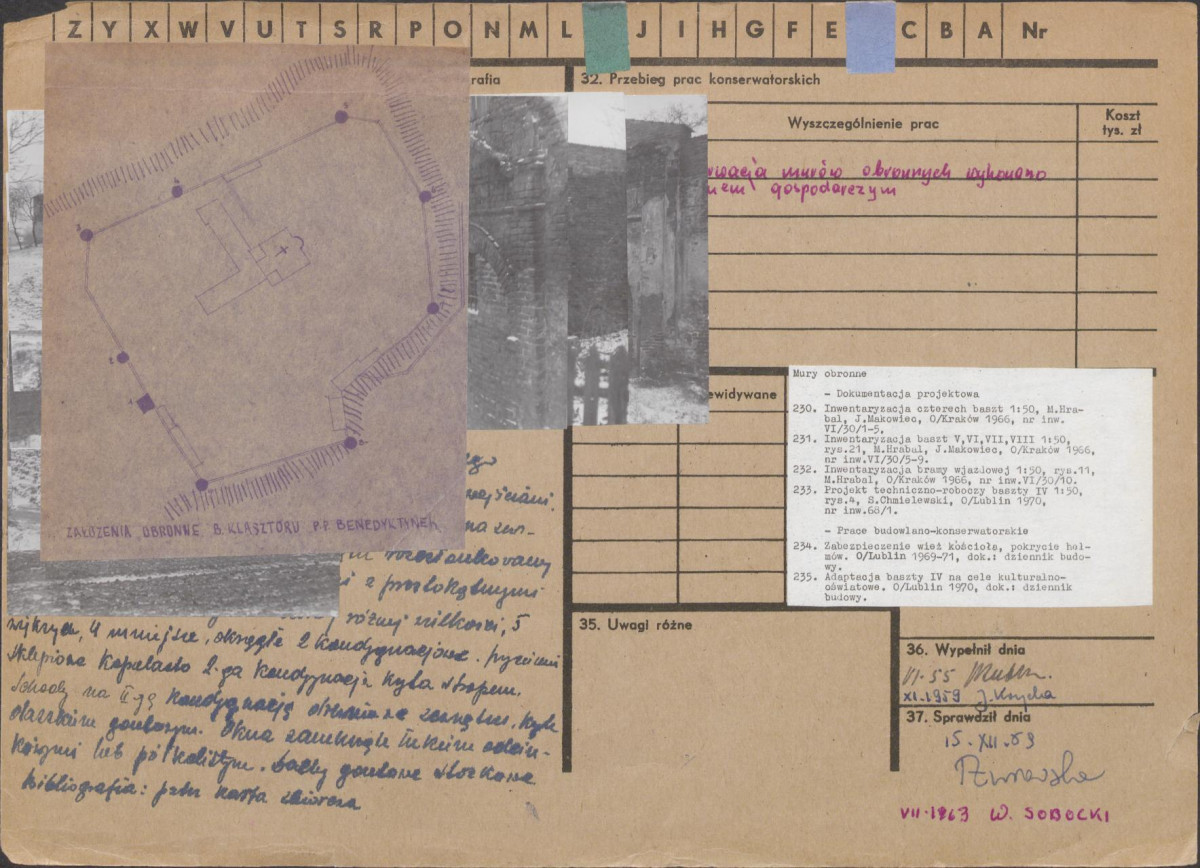 Z Y X W V U T S R P O N M L J I H G F E C B A Nr
rafia
32. Przebieg prac konserwatorskich
Wyszczególnienie prac
Koszt
tys. zł
wacja murów obronnych wykonano
gospodarczym
ewidywane
ZAŁOŻENIA OBRONNE B. KLASZTORU P.P. BENEDYKTYNEK
Mury obronne
- Dokumentacja projektowa
230. Inwentaryzacja czterech baszt 1:50, M.Hra-
bal, J.Makowiec, O/Kraków 1966, nr inw.
VI/30/1-5.
231. Inwentaryzacja baszt V,VI,VII,VIII 1:50,
rys.21, M.Hrabal, J.Makowiec, O/Kraków 1966,
nr inw.VI/30/5-9.
232. Inwentaryzacja bramy wjazdowej 1:50, rys.11,
M.Hrabal, O/Kraków 1966, nr inw.VI/30/10.
233. Projekt techniczno-roboczy baszty IV 1:50,
rys.4, S.Chmielewski, O/Lublin 1970,
nr inw.68/1.
- Prace budowlano-konserwatorskie
234. Zabezpieczenie wież kościoła, pokrycie heł-
mów. O/Lublin 1969-71, dok.: dziennik budo-
wy.
235. Adaptacja baszty IV na cele kulturalno-
oświatowe. O/Lublin 1970, dok.: dziennik
budowy.
na zew-
rozczłonkowany
i z prostokątnymi
różnej wielkości, 5
4 mniejsze, okrągłe 2 kondygnacjowe. przyziemi
sklepione kopulasto 2-ga kondygnacja kryta stropem.
Schody na II-gą kondygnację drewniane zewnętrz. kryte
daszkiem gontowym. Okna zamknięte łukiem odcin-
kowym lub półkolistym. Dachy gontowe stożkowe
Bibliografia: patrz karta zbiorcza
35. Uwagi różne
36. Wypełnił dnia
VI.55
XI.1959 J. Krycha
37. Sprawdził dnia
15.XII.59
VII.1963 W. SOBOCKI